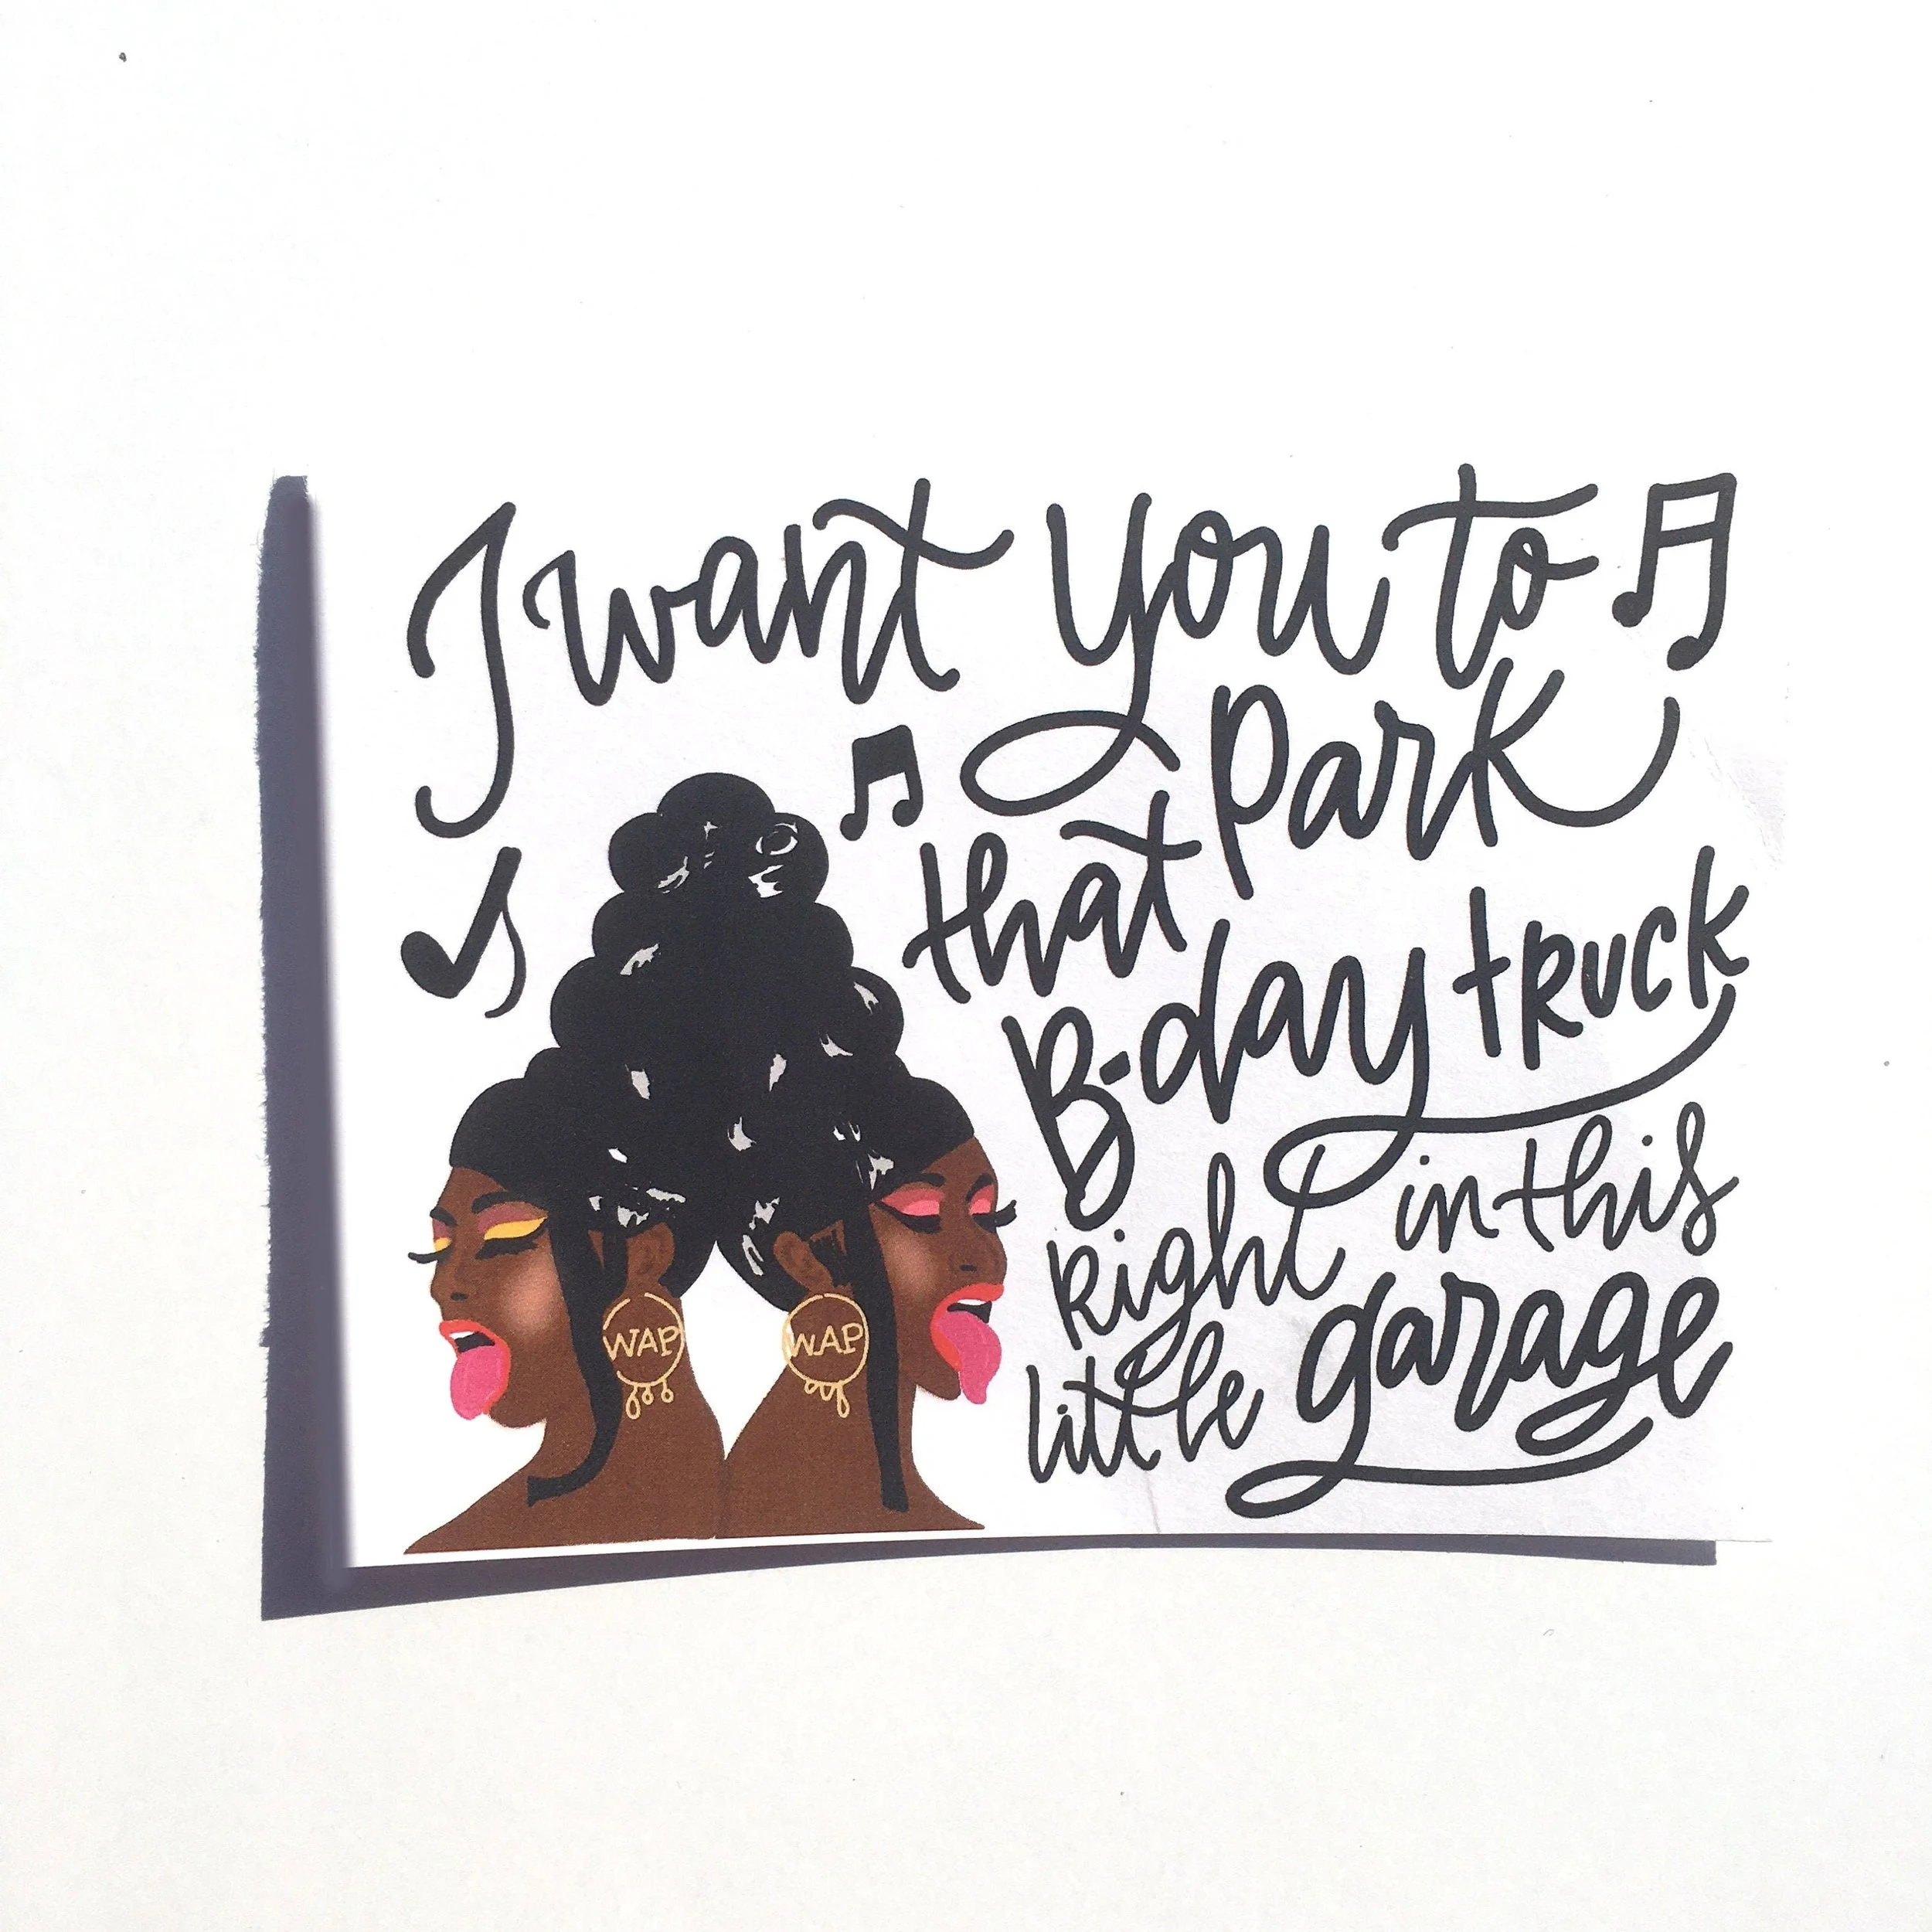 I want you to
park
that
B-day truck
Right in this
little garage
WAP WAP